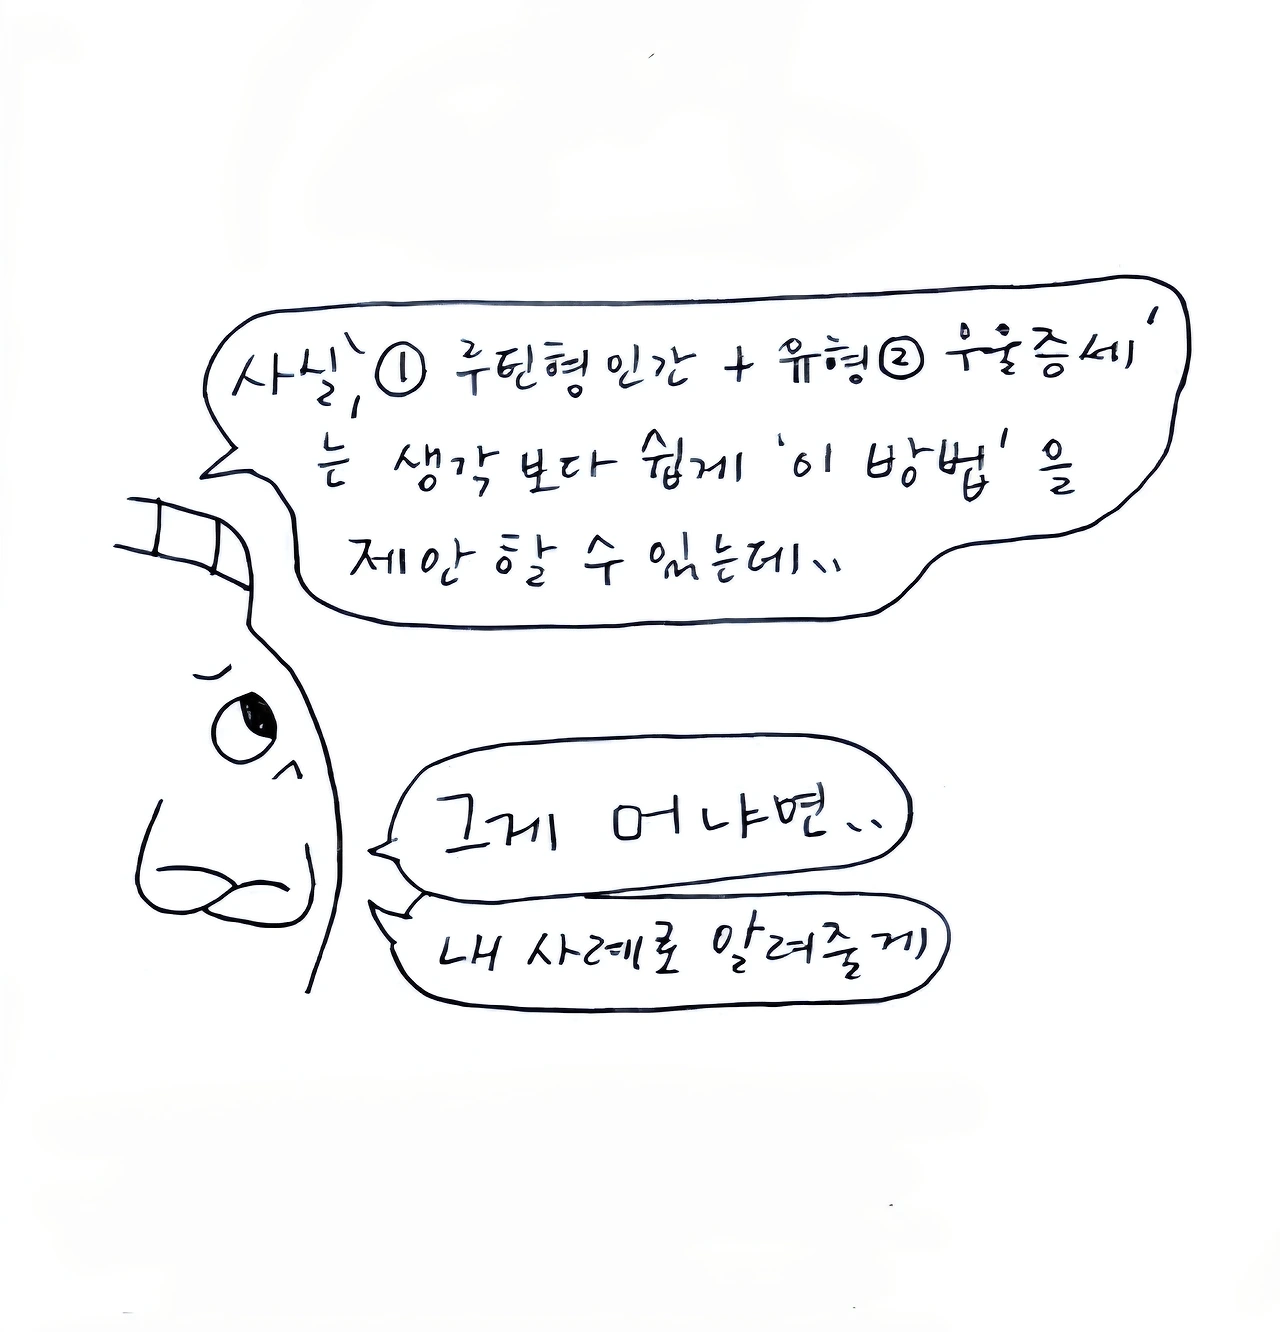 사실, '① 루틴형 인간 + 유형② 우울증세'
는 생각보다 쉽게 '이 방법'을
제안 할 수 있는데..
그게 머냐면..
내 사례로 알려줄게